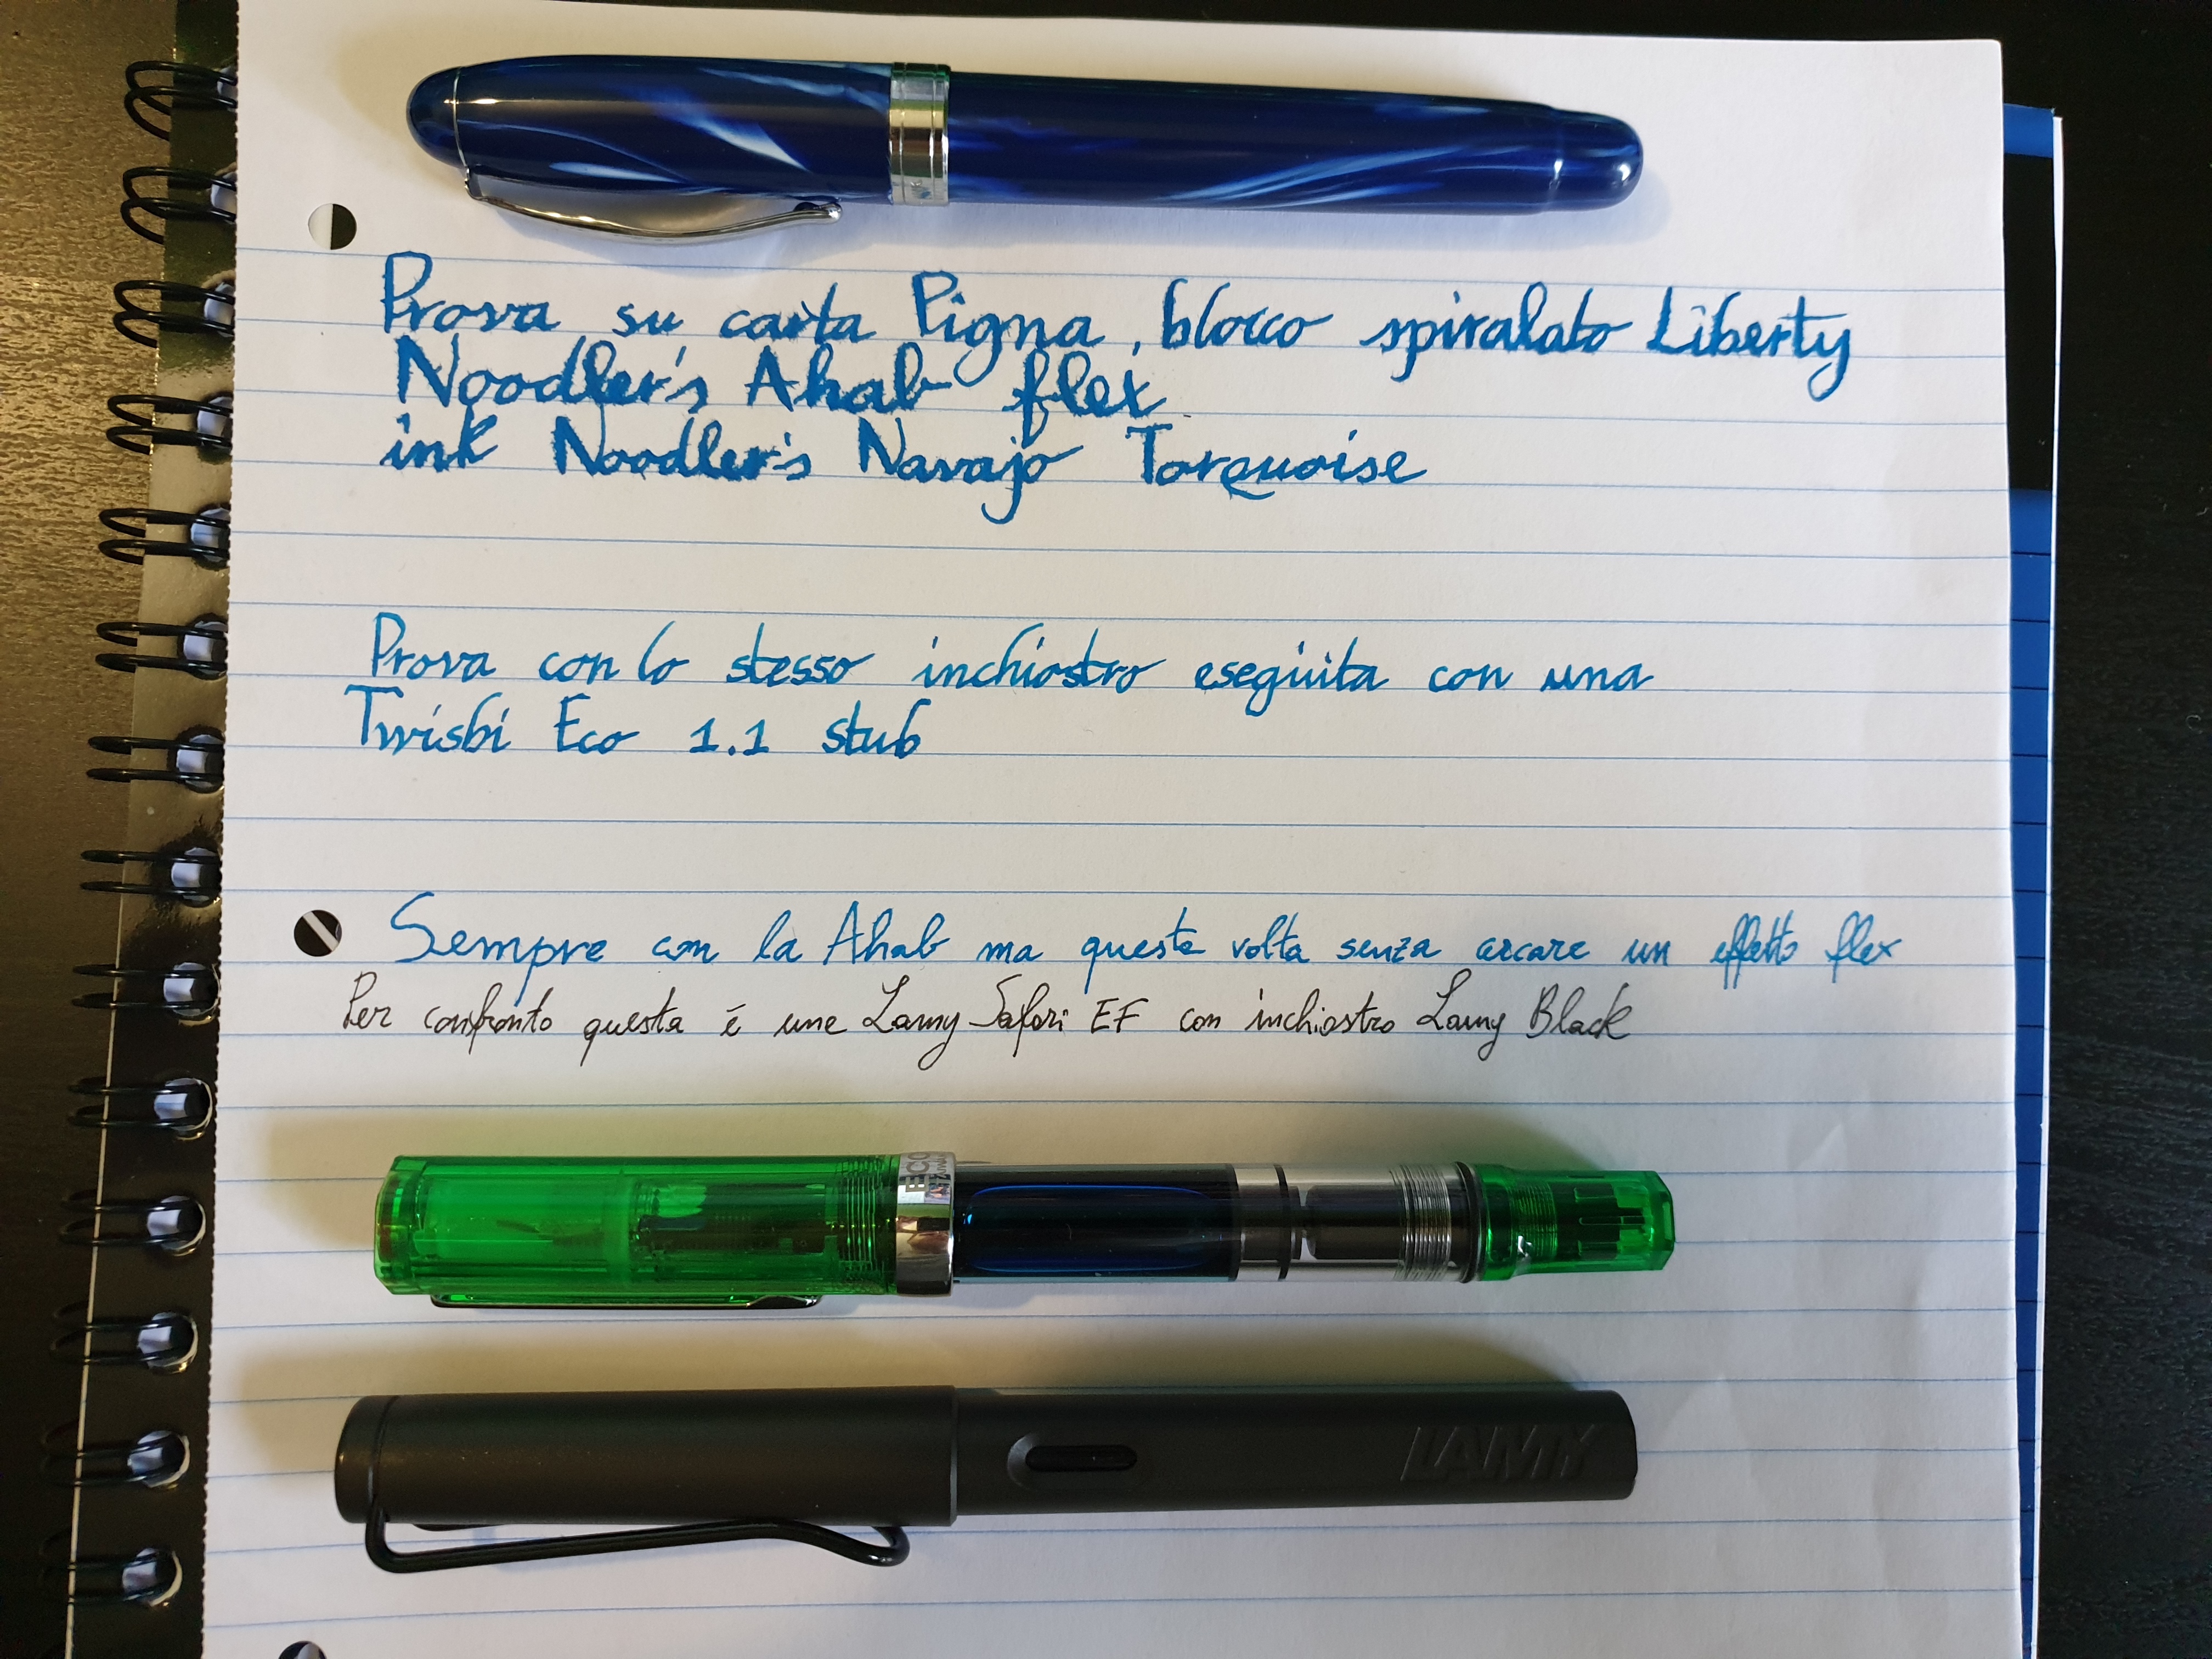 Prova su carta Pigna, blocco spiralato Liberty
Noodler's Ahab flex
ink Noodler's Navajo Torquoise
Prova con lo stesso inchiostro eseguita con una
Twisbi Eco 1.1 stub
Sempre con la Ahab ma questa volta senza cercare un effetto flex
Per confronto questa è una Lamy Safari EF con inchiostro Lamy Black
ECO
LAMY